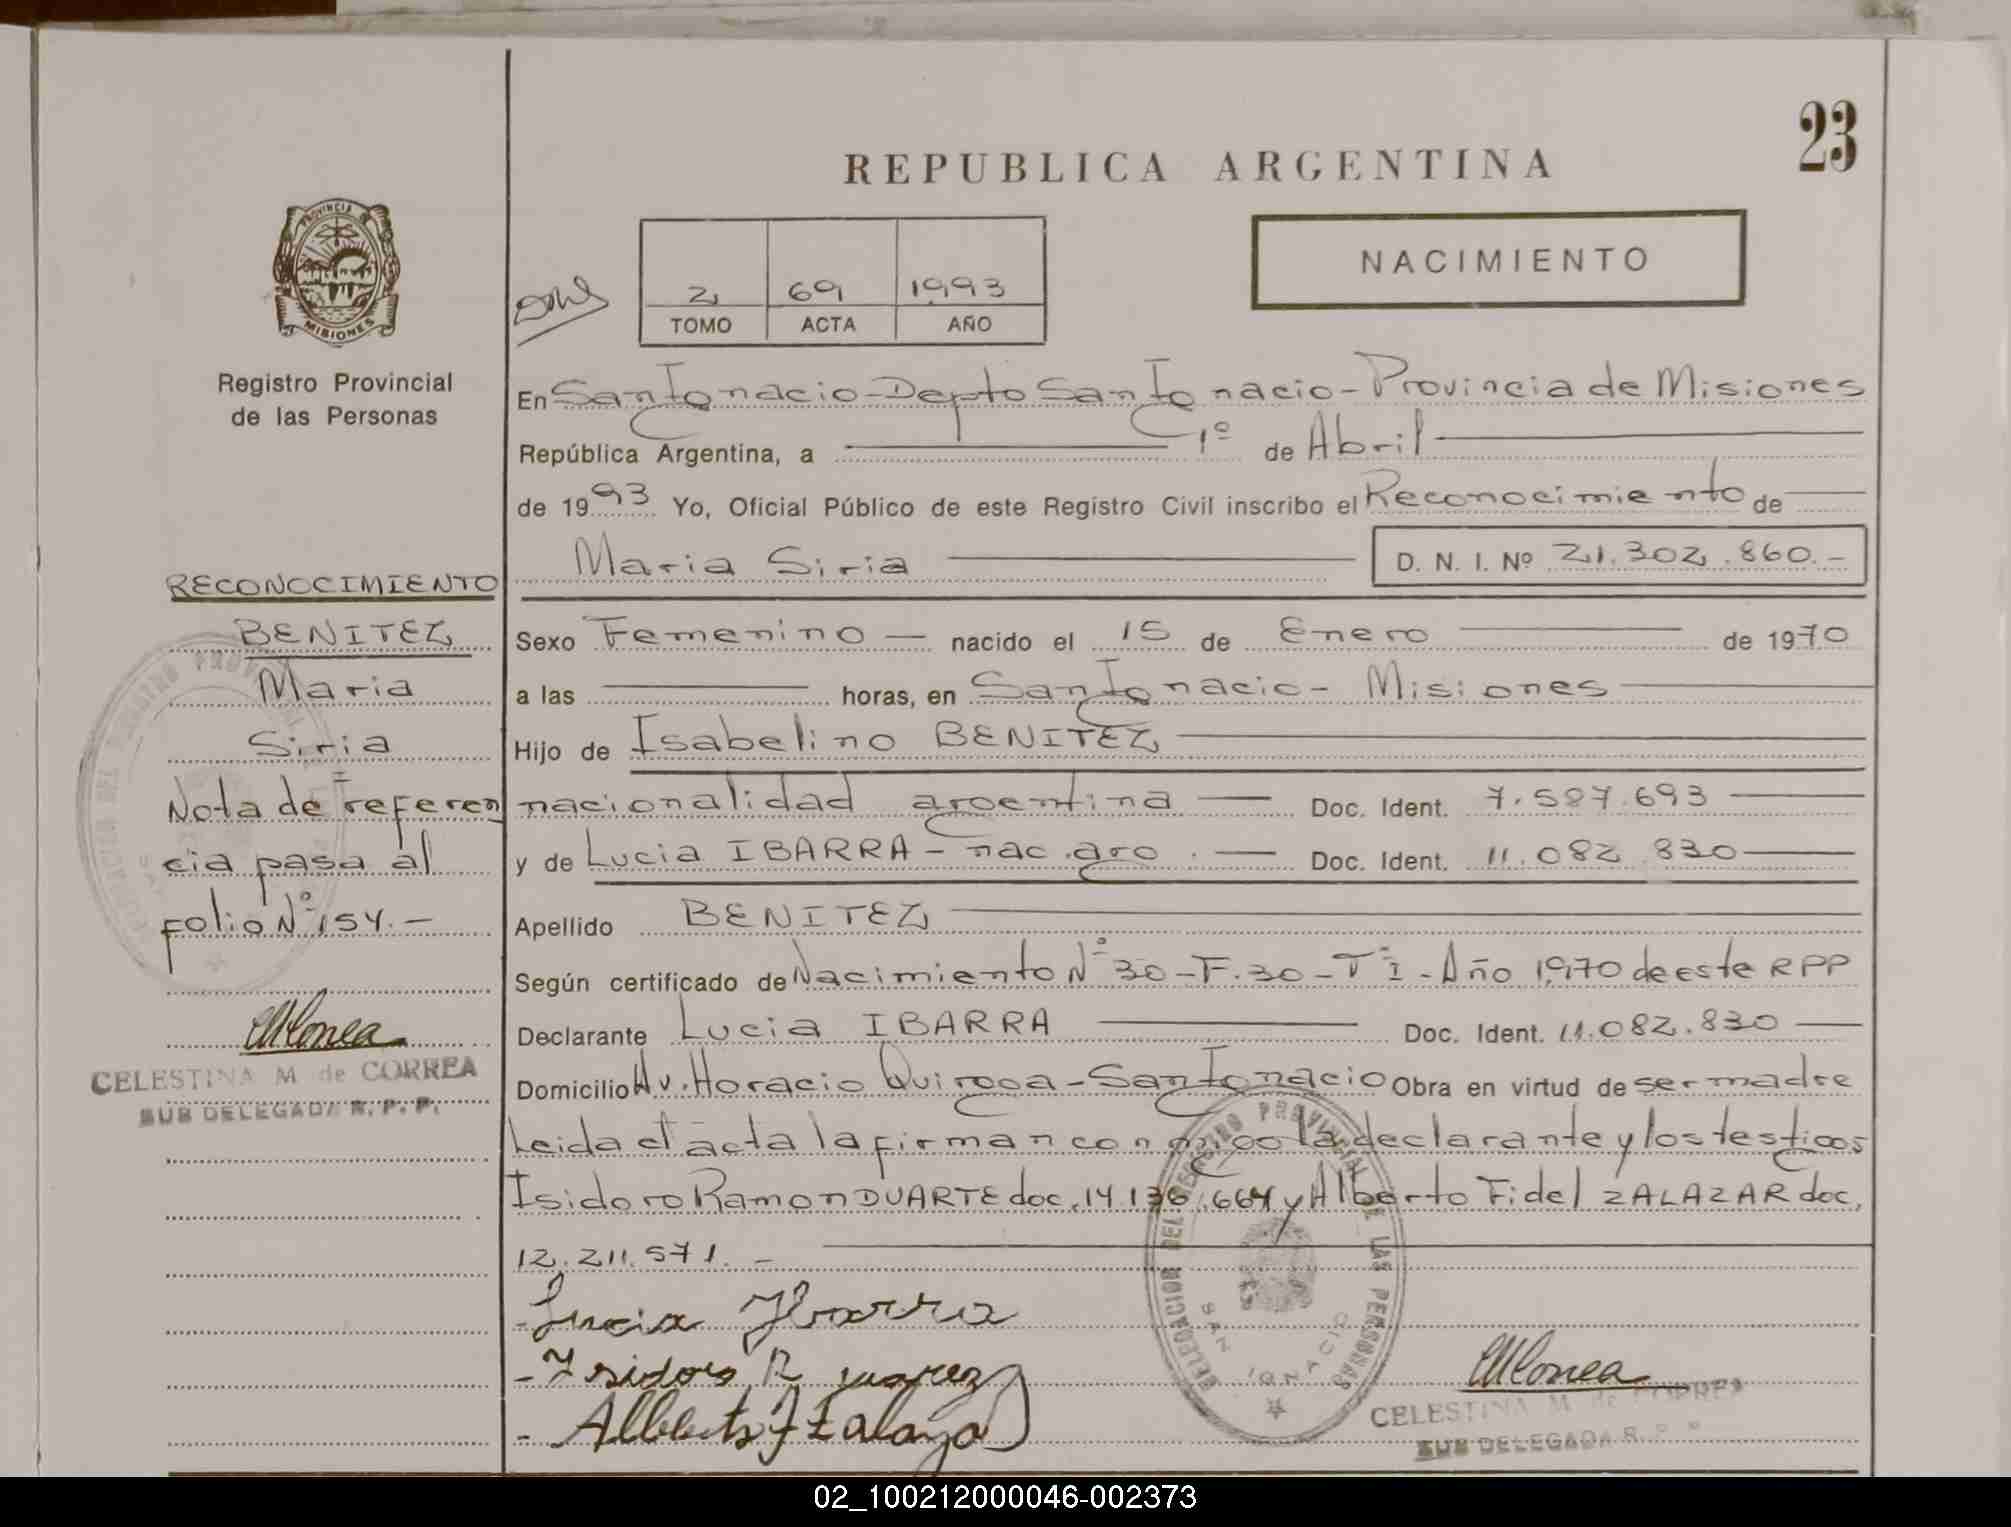 23
REPUBLICA ARGENTINA
NACIMIENTO
2 69 1993
TOMO ACTA AÑO
PROVINCIA DE
MISIONES
Registro Provincial
de las Personas
En San Ignacio - Depto San Ignacio - Provincia de Misiones
República Argentina, a 1º de Abril
de 1993 Yo, Oficial Público de este Registro Civil inscribo el Reconocimiento de
Maria Siria D. N. I. Nº 21.302.860.-
Sexo Femenino nacido el 15 de Enero de 1970
a las horas, en San Ignacio - Misiones
Hijo de Isabelino BENITEZ
nacionalidad argentina Doc. Ident. 7.587.693
y de Lucia IBARRA - nac. arg. Doc. Ident. 11.082.830
Apellido BENITEZ
Según certificado de Nacimiento Nº 30 - F. 30 - Tº I - Año 1970 de este RPP
Declarante Lucia IBARRA Doc. Ident. 11.082.830
Domicilio Av. Horacio Quiroga - San Ignacio Obra en virtud de ser madre
Leida el acta la firman conmigo la declarante y los testigos
Isidoro Ramon DUARTE doc. 14.136.664 y Alberto Fidel ZALAZAR doc.
12.211.571.-
Lucia Ibarra
- Isidoro R
- Alberto F
DELEGACION DEL REGISTRO PROVINCIAL DE LAS PERSONAS
SAN IGNACIO
CELESTINA M de CORREA
SUB DELEGADA R. P. P.
RECONOCIMIENTO
BENITEZ
Maria
Siria
Nota de referen
cia pasa al
folio Nº 154.-
CELESTINA M de CORREA
SUB DELEGADA R. P. P.
02_100212000046-002373